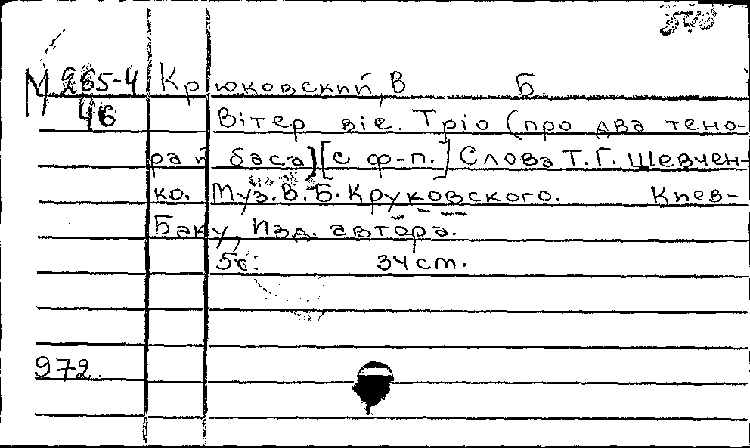 М 265-4 Крюковский, В Б
46 Вітер віє. Тріо (про два тено-
ра й баса) [с ф-п.] Слова Т. Г. Шевчен-
ко. Муз. В. Б. Круковского. Киев-
Баку, Изд. автора.
5с. 34 см.
972.